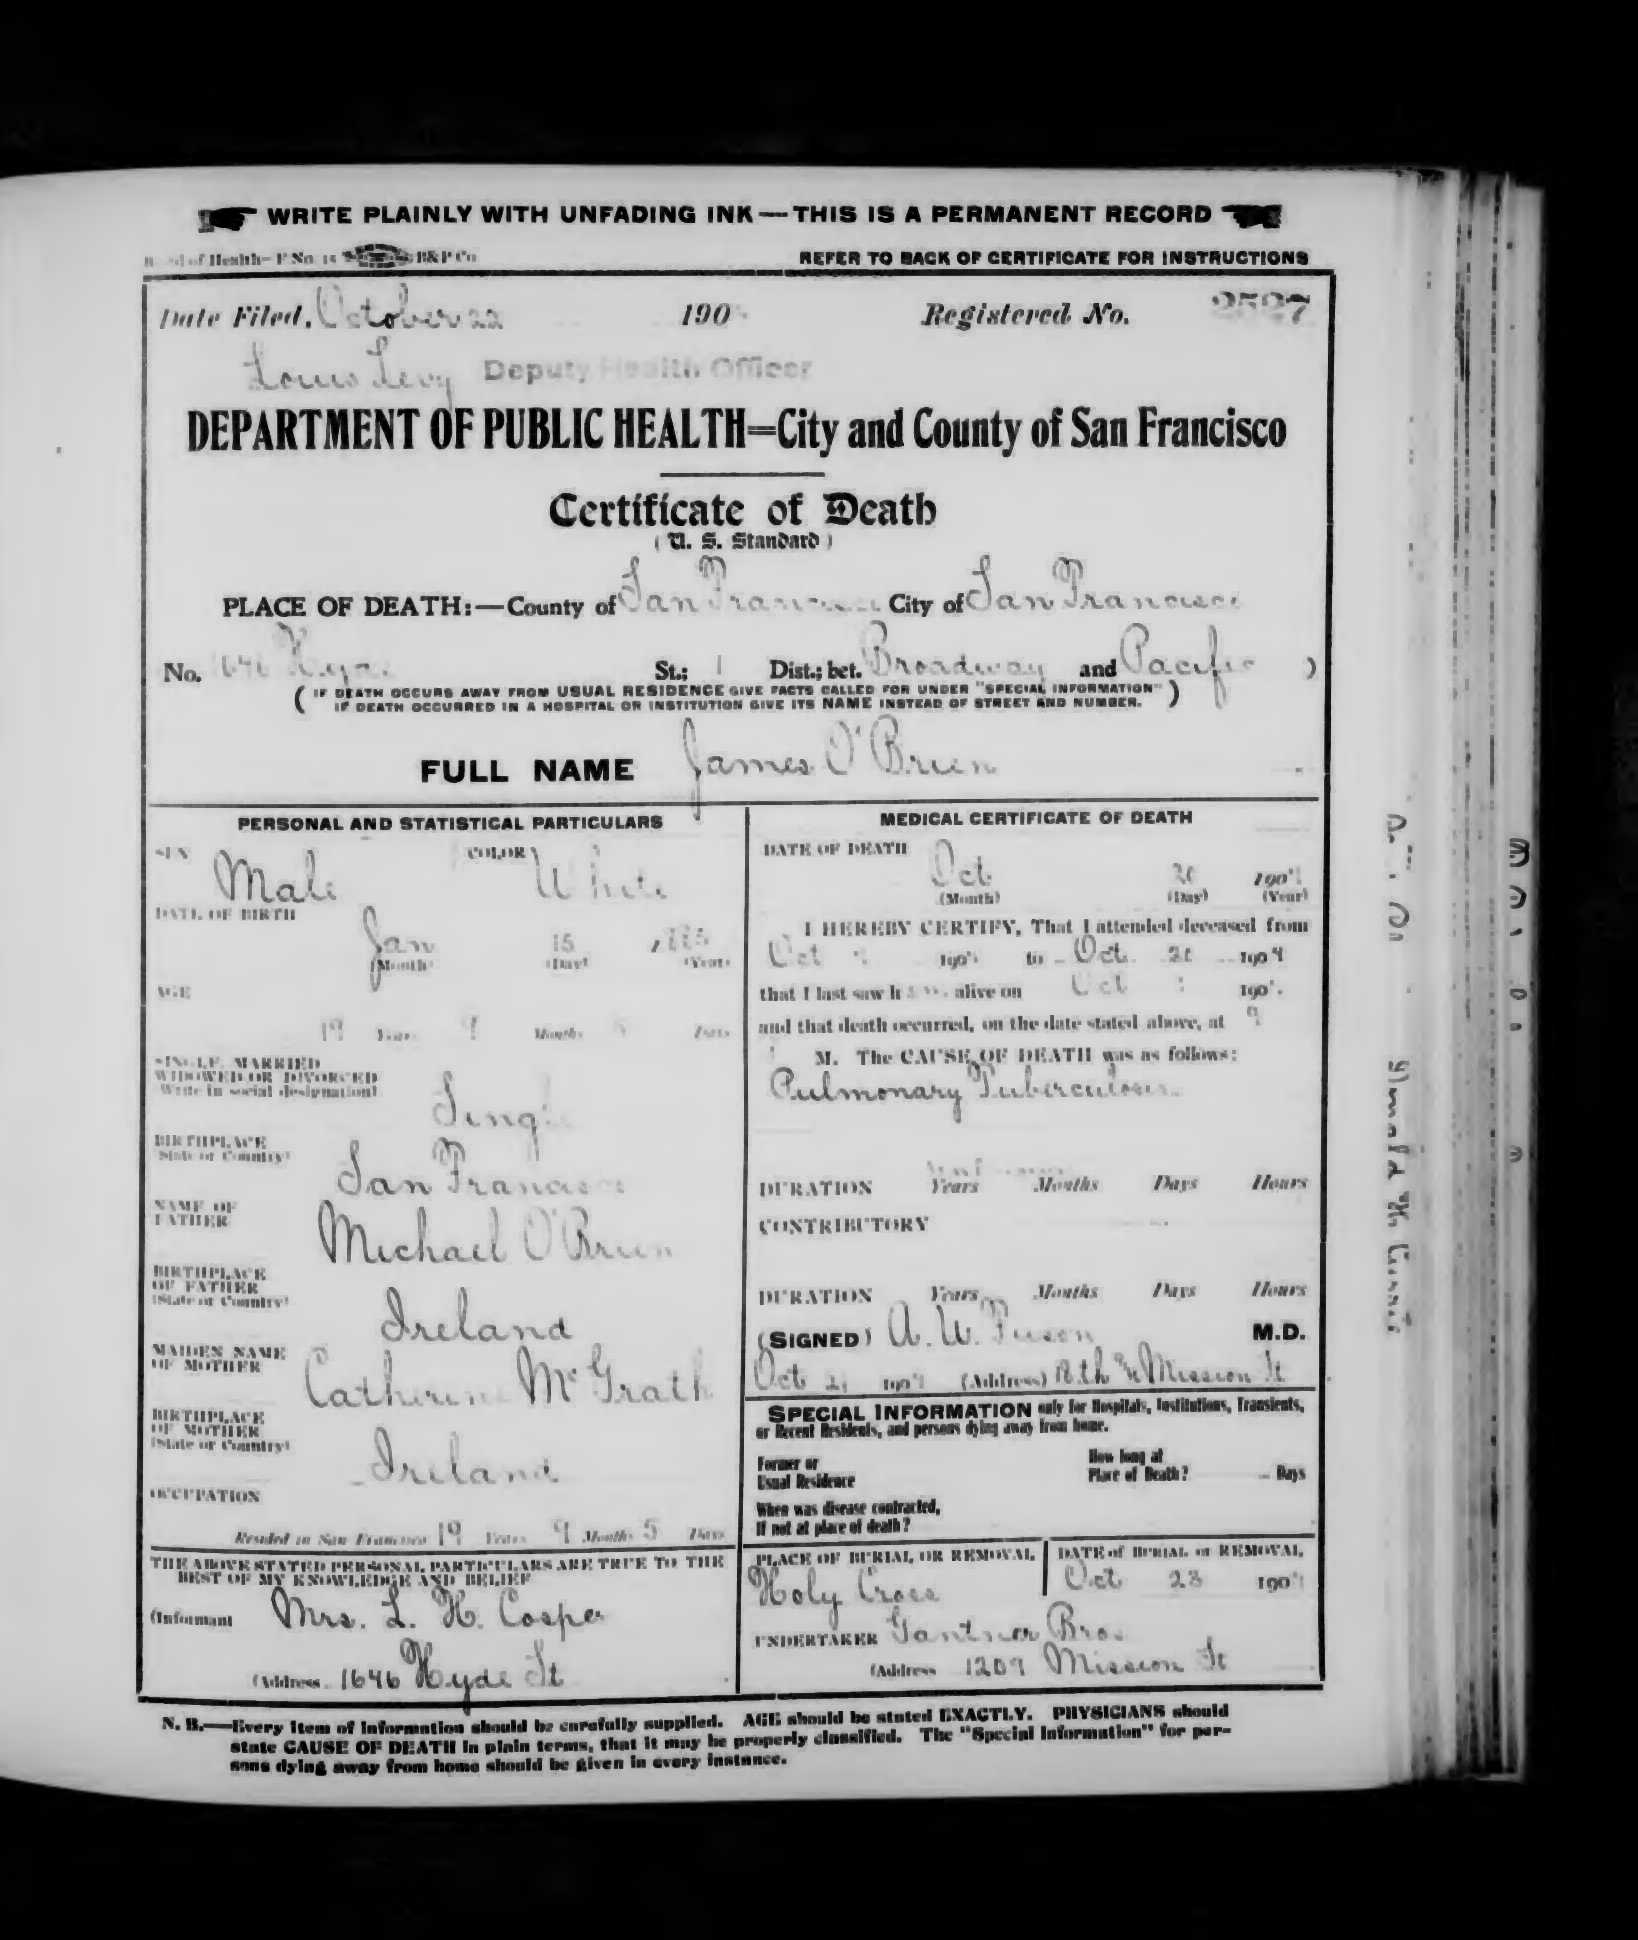 WRITE PLAINLY WITH UNFADING INK — THIS IS A PERMANENT RECORD
of Health—F No. 15 B&P Co
REFER TO BACK OF CERTIFICATE FOR INSTRUCTIONS
Date Filed, October 22 190 Registered No. 2527
Louis Levy Deputy Health Officer
DEPARTMENT OF PUBLIC HEALTH=City and County of San Francisco
Certificate of Death
( U. S. Standard )
PLACE OF DEATH:—County of San Francisco City of San Francisco
No. 1646 Hyde St.; 1 Dist.; bet. Broadway and Pacific )
( IF DEATH OCCURS AWAY FROM USUAL RESIDENCE GIVE FACTS CALLED FOR UNDER "SPECIAL INFORMATION"
IF DEATH OCCURRED IN A HOSPITAL OR INSTITUTION GIVE ITS NAME INSTEAD OF STREET AND NUMBER. )
FULL NAME James O'Brien
PERSONAL AND STATISTICAL PARTICULARS
SEX Male COLOR White
DATE OF BIRTH
Jan 15
(Month) (Day) (Year)
AGE
19 Years 9 Months 5 Days
SINGLE, MARRIED
WIDOWED OR DIVORCED
Write in social designation)
Single
BIRTHPLACE
(State or Country)
San Francisco
NAME OF
FATHER
Michael O'Brien
BIRTHPLACE
OF FATHER
(State or Country)
Ireland
MAIDEN NAME
OF MOTHER
Catherine McGrath
BIRTHPLACE
OF MOTHER
(State or Country)
Ireland
OCCUPATION
Resided in San Francisco 19 Years 9 Months 5 Days
THE ABOVE STATED PERSONAL PARTICULARS ARE TRUE TO THE
BEST OF MY KNOWLEDGE AND BELIEF
(Informant Mrs. L. H. Cosper
(Address 1646 Hyde St
MEDICAL CERTIFICATE OF DEATH
DATE OF DEATH
Oct 20 190
(Month) (Day) (Year)
I HEREBY CERTIFY, That I attended deceased from
Oct 190 to Oct. 20 190
that I last saw h alive on Oct 190
and that death occurred, on the date stated above, at 9
M. The CAUSE OF DEATH was as follows:
Pulmonary Tuberculosis
DURATION Years Months Days Hours
CONTRIBUTORY
DURATION Years Months Days Hours
(SIGNED) A. W. M.D.
Oct 190 (Address) Mission St
SPECIAL INFORMATION only for Hospitals, Institutions, Transients,
or Recent Residents, and persons dying away from home.
Former or
Usual Residence
How long at
Place of Death? Days
When was disease contracted,
If not at place of death?
PLACE OF BURIAL OR REMOVAL
Holy Cross
DATE of BURIAL or REMOVAL
Oct 23 190
UNDERTAKER Gantner Bros
(Address 1209 Mission St
N. B.—Every item of information should be carefully supplied. AGE should be stated EXACTLY. PHYSICIANS should
state CAUSE OF DEATH in plain terms, that it may be properly classified. The "Special Information" for per-
sons dying away from home should be given in every instance.